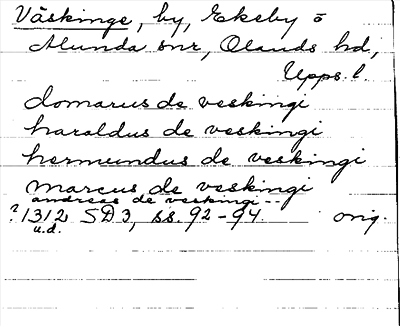 Väskinge, by, Ekeby ö
Alunda snr, Olands hd,
Upps. l.
domarus de veskingi
haraldus de veskingi
hermundus de veskingi
marcus de veskingi
andreas de veskingi --
? 1312 SD3, ss. 92-94. orig.
u.d.